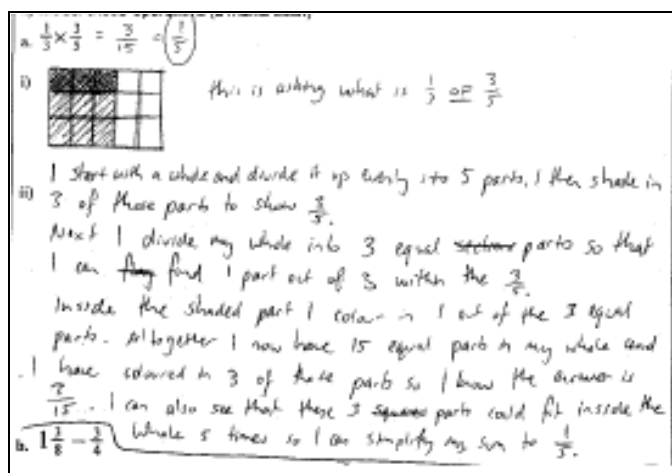 a. 1/3 × 3/5 = 3/15 = 1/5
i) this is asking what is 1/3 of 3/5
I start with a whole and divide it up evenly into 5 parts, I then shade in
ii) 3 of those parts to show 3/5.
Next I divide my whole into 3 equal parts so that
I can find 1 part out of 3 within the 3/5.
Inside the shaded part I colour in 1 out of the 3 equal
parts. Altogether I now have 15 equal parts in my whole and
I have coloured in 3 of those parts so I know the answer is
3/15. I can also see that these 3 parts could fit inside the
whole 5 times so I can simplify my sum to 1/5.
b. 1 3/8 - 3/4